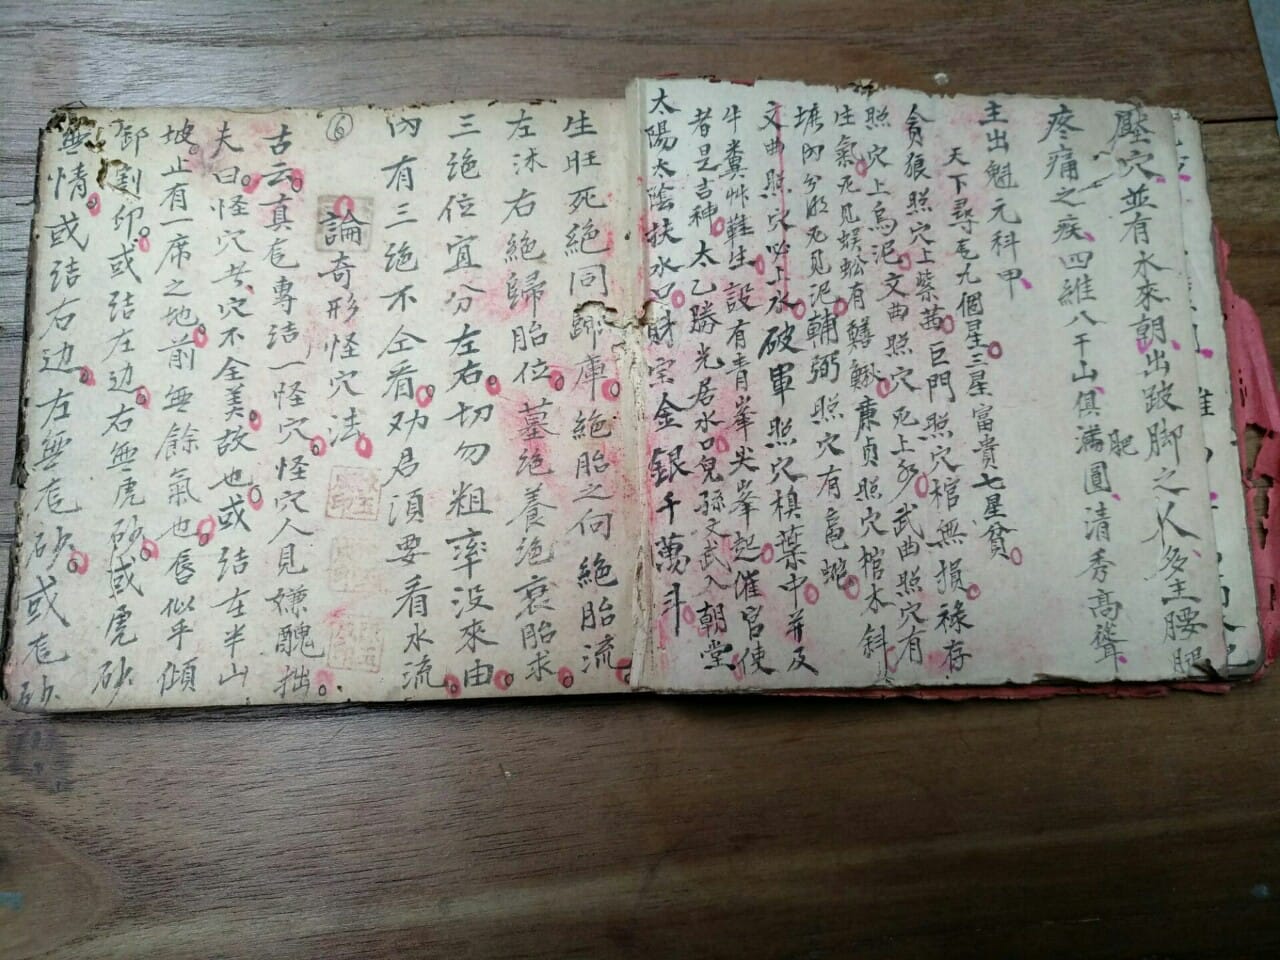 壓穴並有水來朝出跛脚之人多主腰腿
疼痛之疾四維八干山俱滿圓肥清秀高聳
主出魁元科甲
天下尋龙九個星三星富貴七星貧
貪狼照穴上紫茜巨門照穴棺無損祿存
照穴上烏泥文曲照穴死上水武曲照穴有
生氣死見蜈蚣有鱔鰍廉貞照穴棺木斜
塘內分形死见泥輔弼照穴有龟蛇
文曲照穴必上水破軍照穴槙葉中并及
牛糞艸鞋生設有青峯尖峯起催官使
者是吉神太乙勝光居水口兒孫文武入朝堂
太陽太陰扶水口財宝金銀千萬斗
生旺死絕同歸庫絕胎之向絕胎流
左沐右絕歸胎位墓絕養绝衰胎求
三绝位宜分左右切勿粗率没來由
內有三绝不仝看劝君須要看水流
⑥
論奇形怪穴法
古云真龙專结一怪穴怪穴人見嫌醜拙
夫曰怪穴者穴不全美故也或结在半山
坡上有一席之地前無餘氣也唇似乎傾
卸割卯或结左边右無虎砂或虎砂
無情或结右边左無龙砂或龙砂